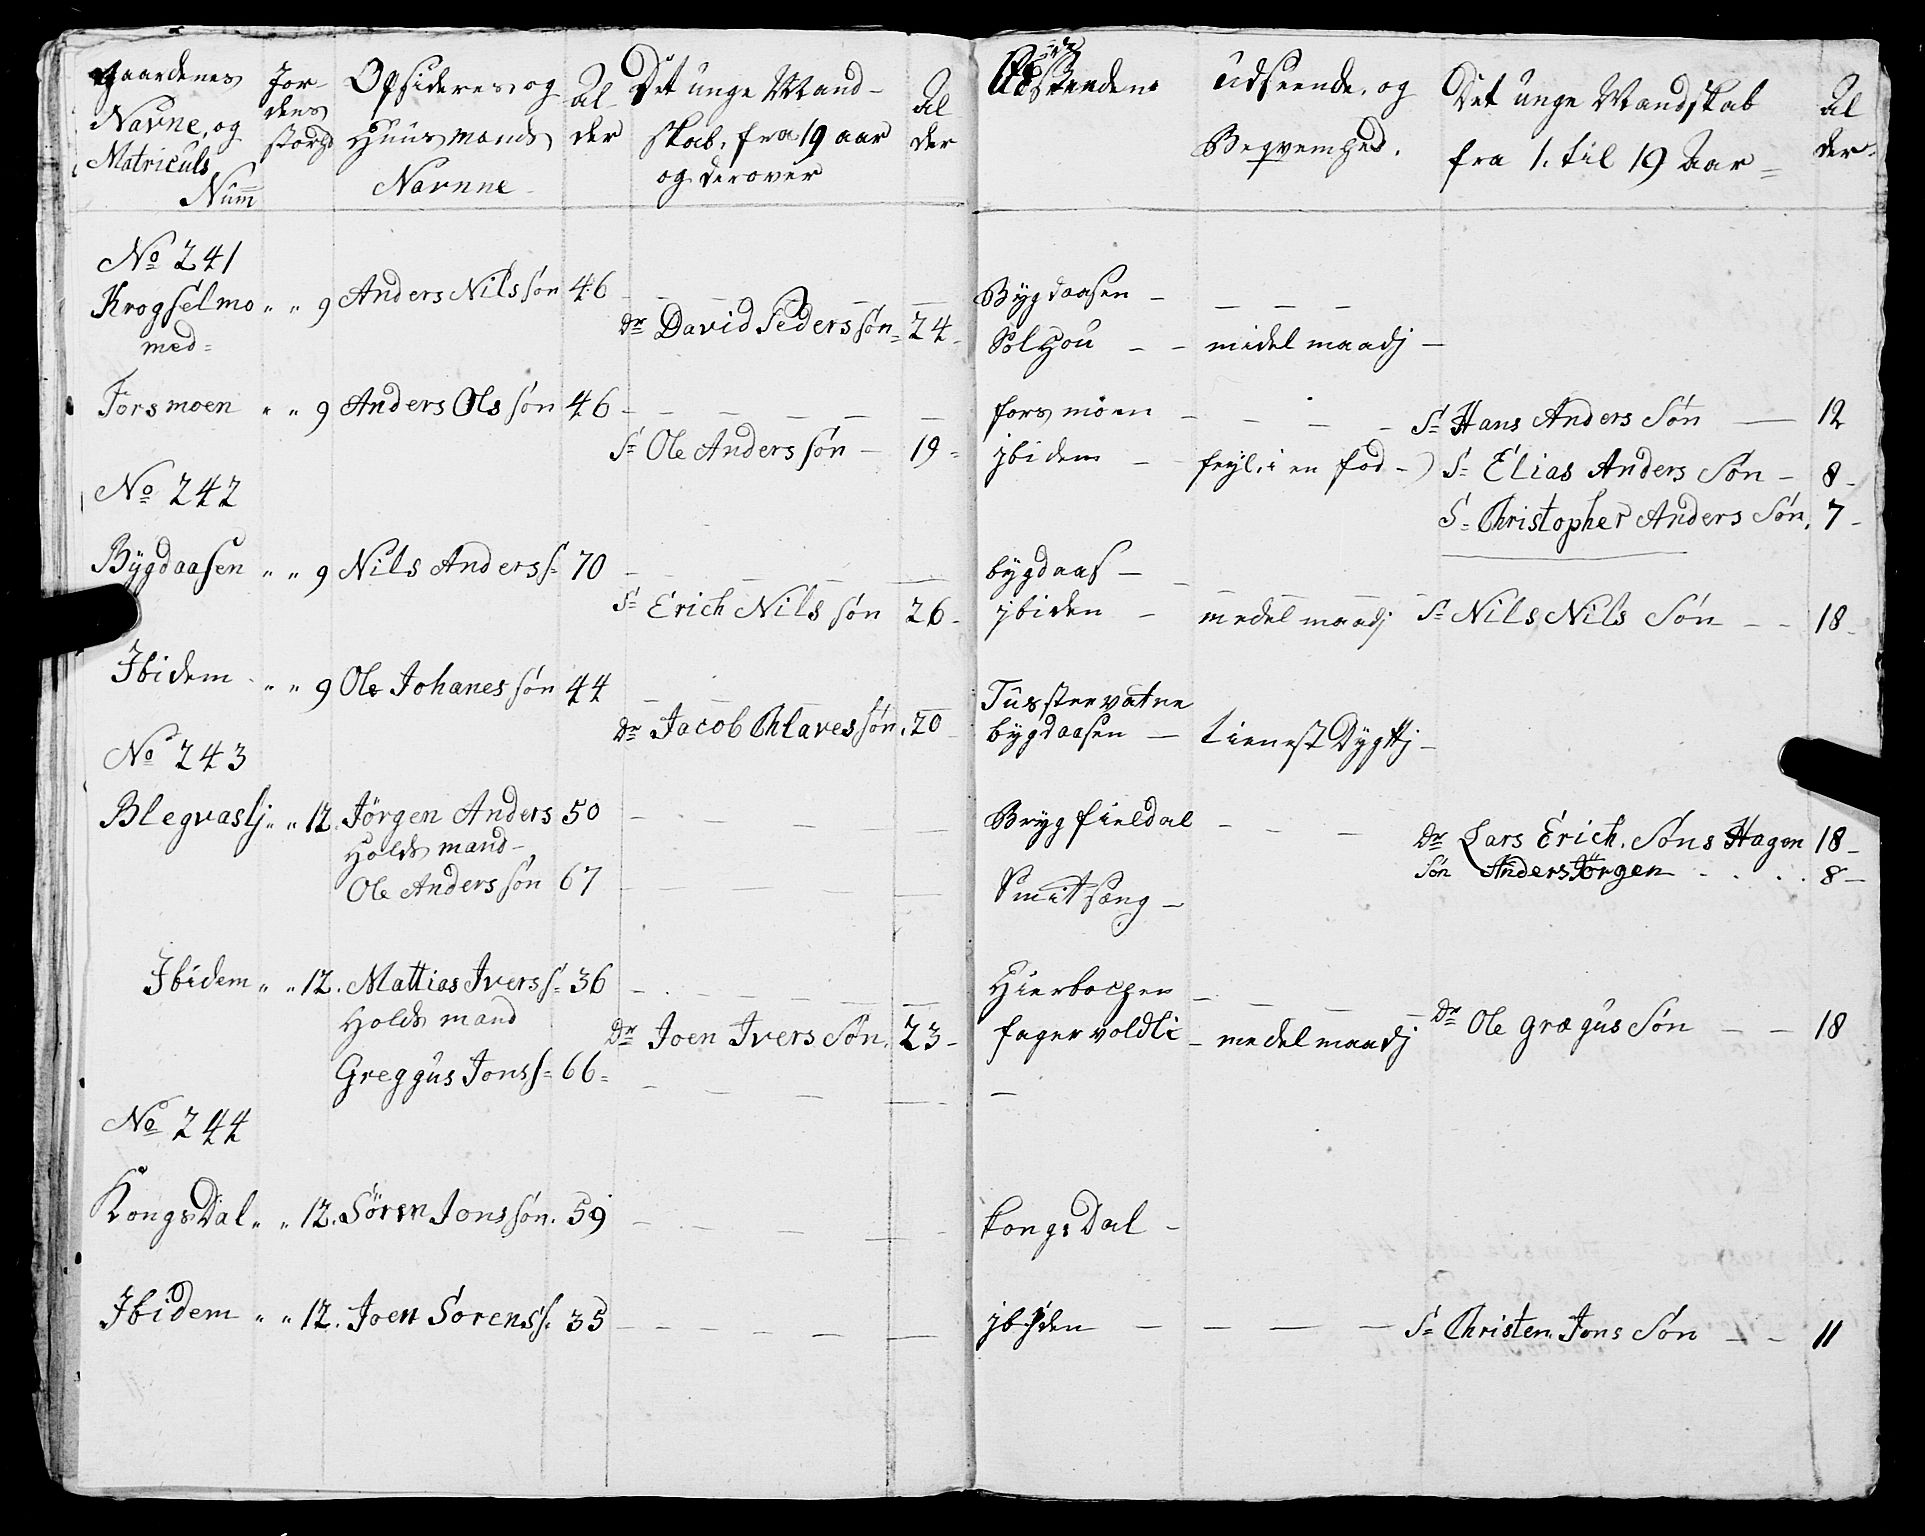 Gaardenes Navne, og Matriculs Num̅
Jordens størhd
Opsideres og Huusmands Navnne
Al der
Det unge Mandskab, fra 19 aar og derover
Al der
Udseende, og Beqvemhed.
Det unge Mandskab fra 1. til 19 Aar =
Al der
No 241
Krogselmo " " 9 Anders Nils søn 46 — Bÿgdaasen —
med= Dr David Peders søn = 24 - Solhou — — midel maadj —
Forsmoen " " 9 Anders Ols søn 46 — forsmoen — S= Hans Anders Søn — 12
S= Ole Anders søn — 19 = jbidem — feyl, i en fod -) S= Elias Anders Søn — 8 -
No 242
S= Christopher Anders Søn, 7 -
Bÿgdaasen " " 9 Nils Anders s= 70 — bÿgdaas —
S= Erich Nils søn 26 - jbiden — medel maadj S= Nils Nils Søn — — 18 -
Ibidem " " 9 Ole Johanes søn 44 — Tusstervatne
Dr Jacob Chlaves søn. 20 bÿgdaasen — tienestDygttj —
No 243
Blegvaslj " " 12. Jörgen Anders 50 — Brygfieldal — Dr Lars Erich. Søns Hagen 18 -
Holds mand -
Søn Anders Jørgen - . . . 8 -
Ole Anders søn 67 — Smitsæng —
Ibidem " " 12. Mattias Ivers s= 36 —
Holds mand
Dr Joen Ivers Søn. 23 - fagervoldli — medel maadj Dr Ole Grægus Søn — — 18
Greggus Jons s= 66 = —
No 244
KongsDal " " 12. Sören Jons søn. 59 — kongsDal —
Ibidem " " 12. Joen Sorens s. 35 — jbiden — S= Christen Jons Søn — — 11